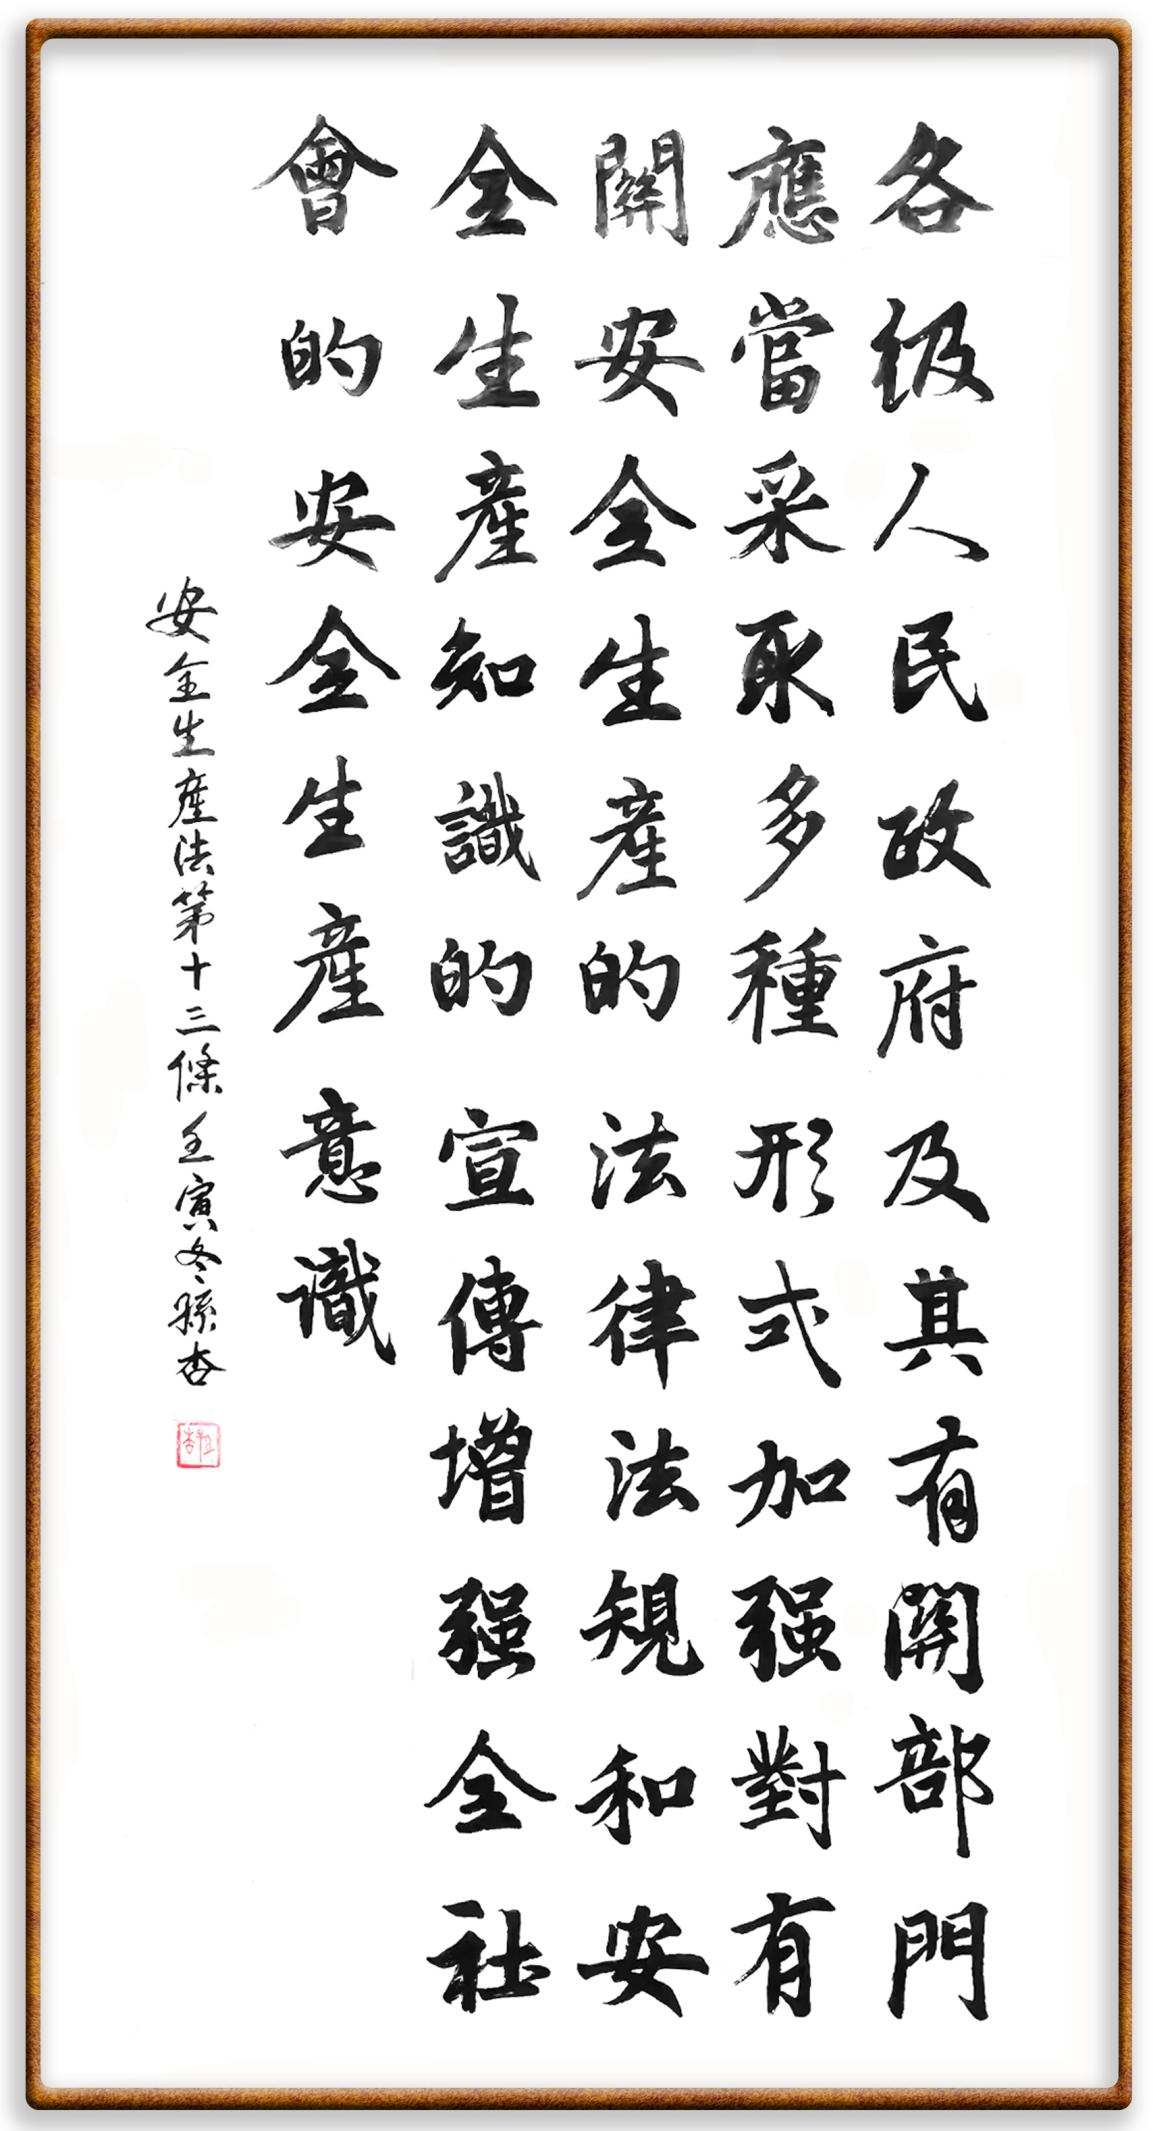 各级人民政府及其有關部門
應當采取多種形式加强對有
關安全生産的法律法規和安
全生産知識的宣傳增强全社
會的安全生産意識
安全生産法第十三條壬寅冬孫杏